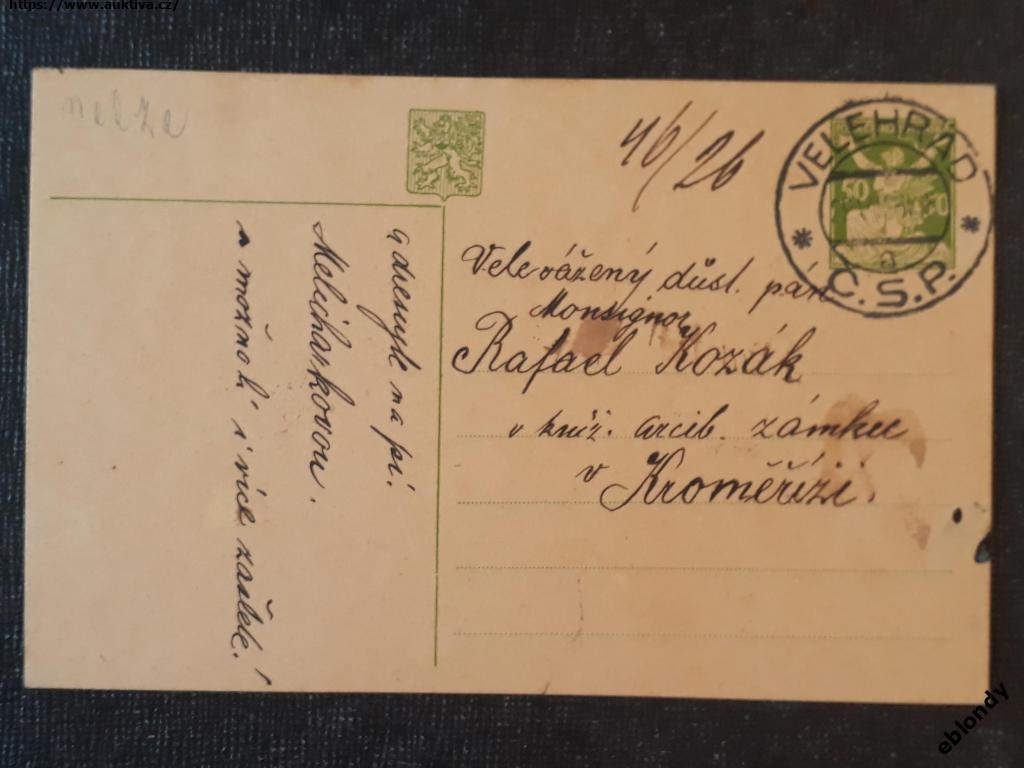 https://www.auktiva.cz/
nelze
46/26
VELEHRAD
50 50
a
Č.S.P.
Velevážený důst. pán
Monsignor
Rafael Kozák
v kníž. arcib. zámku
v Kroměříži.
na pí.
Melicharkovou.
a možná i více zašle!
eblondy